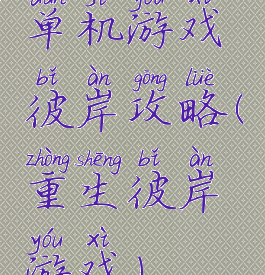 dān jī yóu xì
单机游戏
bǐ àn gōng lüè
彼岸攻略(
zhòng shēng bǐ àn
重生彼岸
yóu xì
游戏)